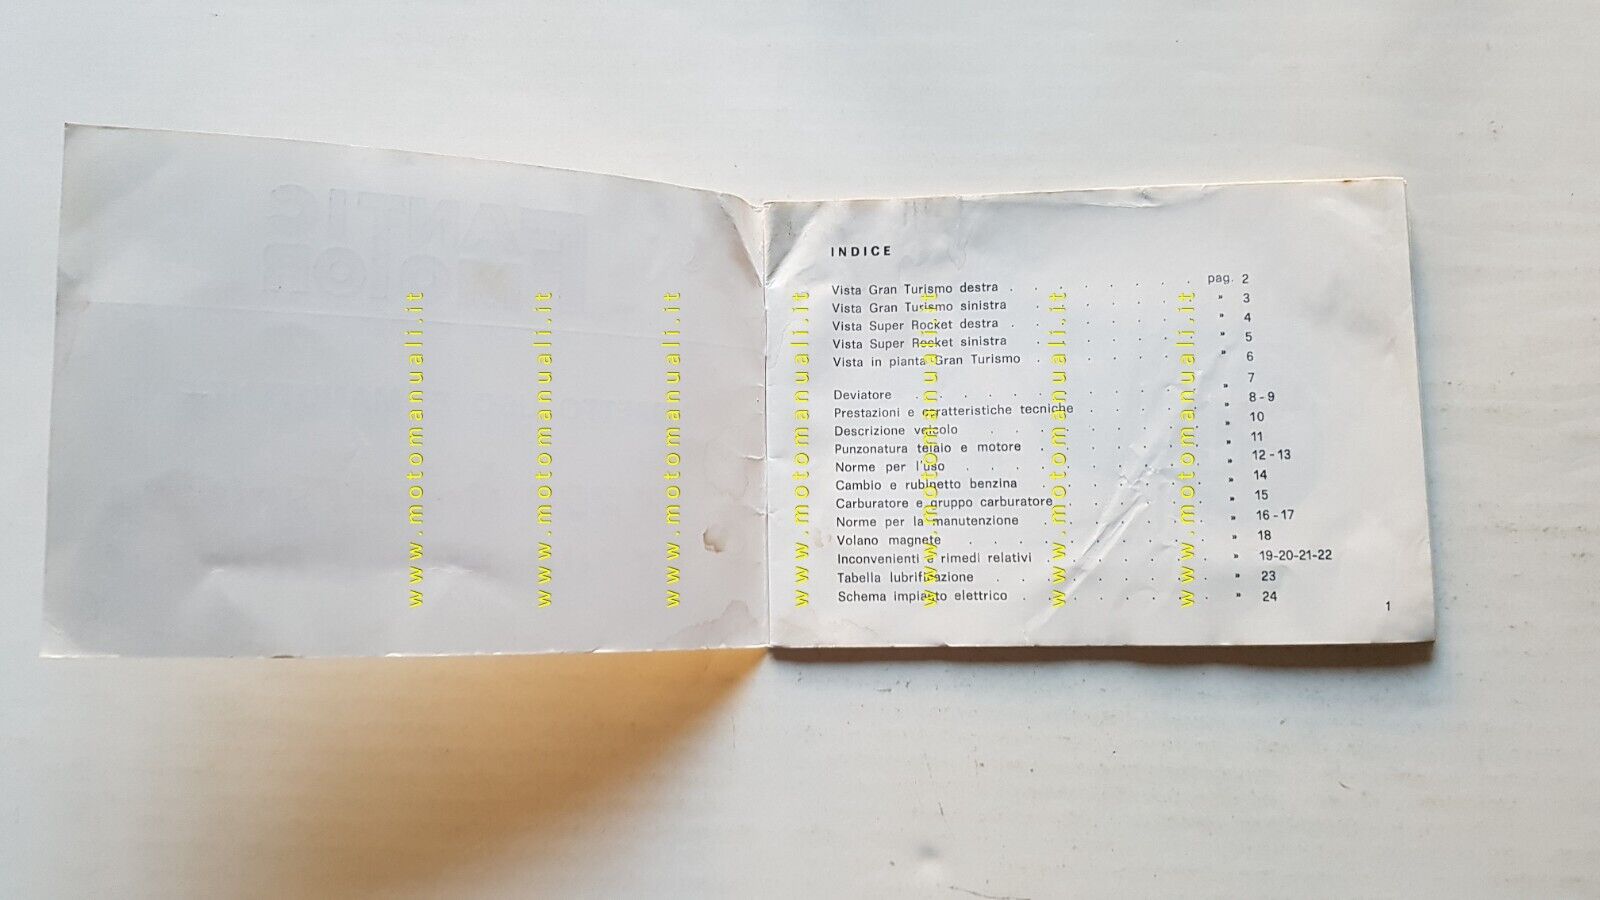 INDICE
Vista Gran Turismo destra . . . . . . . pag. 2
Vista Gran Turismo sinistra . . . . . . » 3
Vista Super Rocket destra . . . . . . . » 4
Vista Super Rocket sinistra . . . . . . » 5
Vista in pianta Gran Turismo . . . . . . » 6
Deviatore . . . . . . . . » 7
Prestazioni e caratteristiche tecniche . . . . » 8-9
Descrizione veicolo . . . . . . . » 10
Punzonatura telaio e motore . . . . . . » 11
Norme per l'uso . . . . . . . » 12-13
Cambio e rubinetto benzina . . . . . . » 14
Carburatore e gruppo carburatore . . . . . » 15
Norme per la manutenzione . . . . . . » 16-17
Volano magnete . . . . . . . » 18
Inconvenienti e rimedi relativi . . . . . . » 19-20-21-22
Tabella lubrificazione . . . . . . . » 23
Schema impianto elettrico . . . . . . . » 24
1
www.motomanuali.it
www.motomanuali.it
www.motomanuali.it
www.motomanuali.it
www.motomanuali.it
www.motomanuali.it
www.motomanuali.it